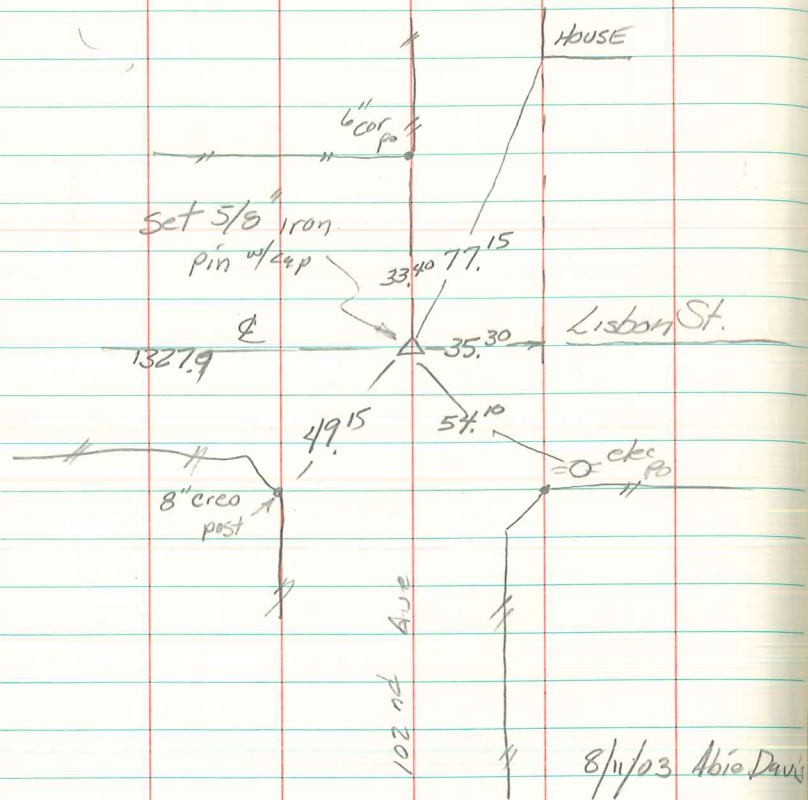 HOUSE
6" cor
po
Set 5/8" Iron
pin w/cap
33.40
77.15
℄
1327.9
35.30
Lisbon St.
49.15
54.10
elec
po
8" creo
post
102 nd Ave
8/11/03 Abie Davis